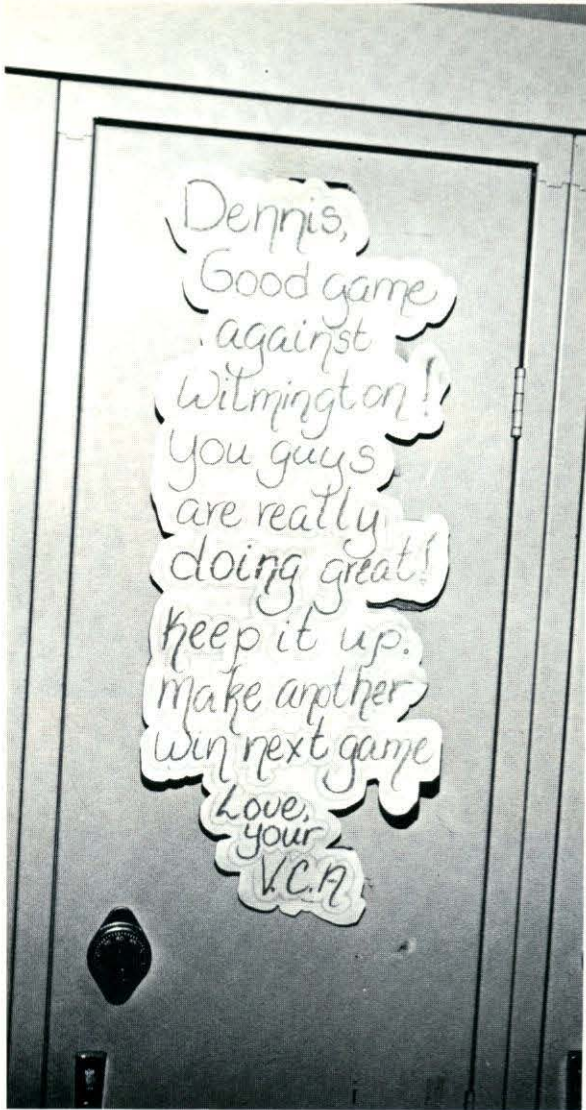 Dennis,
Good game
against
Wilmington!
you guys
are really
doing great!
Keep it up.
make another
win next game
Love,
your
V.C.A